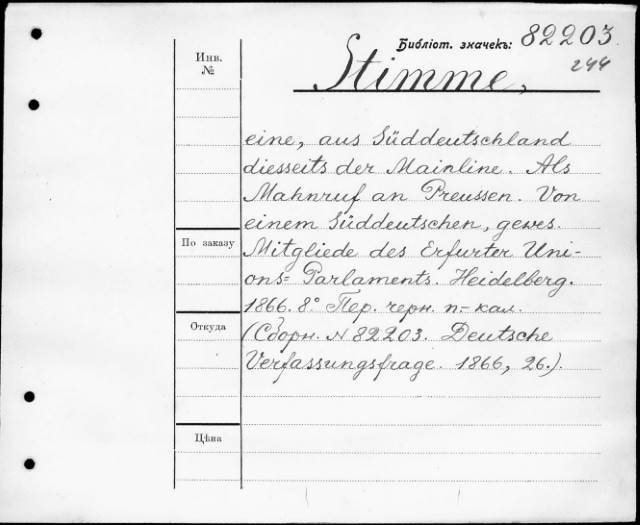 Библіот. значекъ: 82203
244
Инв.
№
Stimme,
eine, aus Süddeutschland
diesseits der Mainline. Als
Mahnruf an Preussen. Von
einem Süddeutschen, gewes.
По заказу
Mitgliede des Erfurter Uni-
ons= Parlaments. Heidelberg.
1866. 8° Пер. черн. п-кал.
Откуда
(Сборн. N 82203. Deutsche
Verfassungsfrage. 1866, 26.).
Цѣна